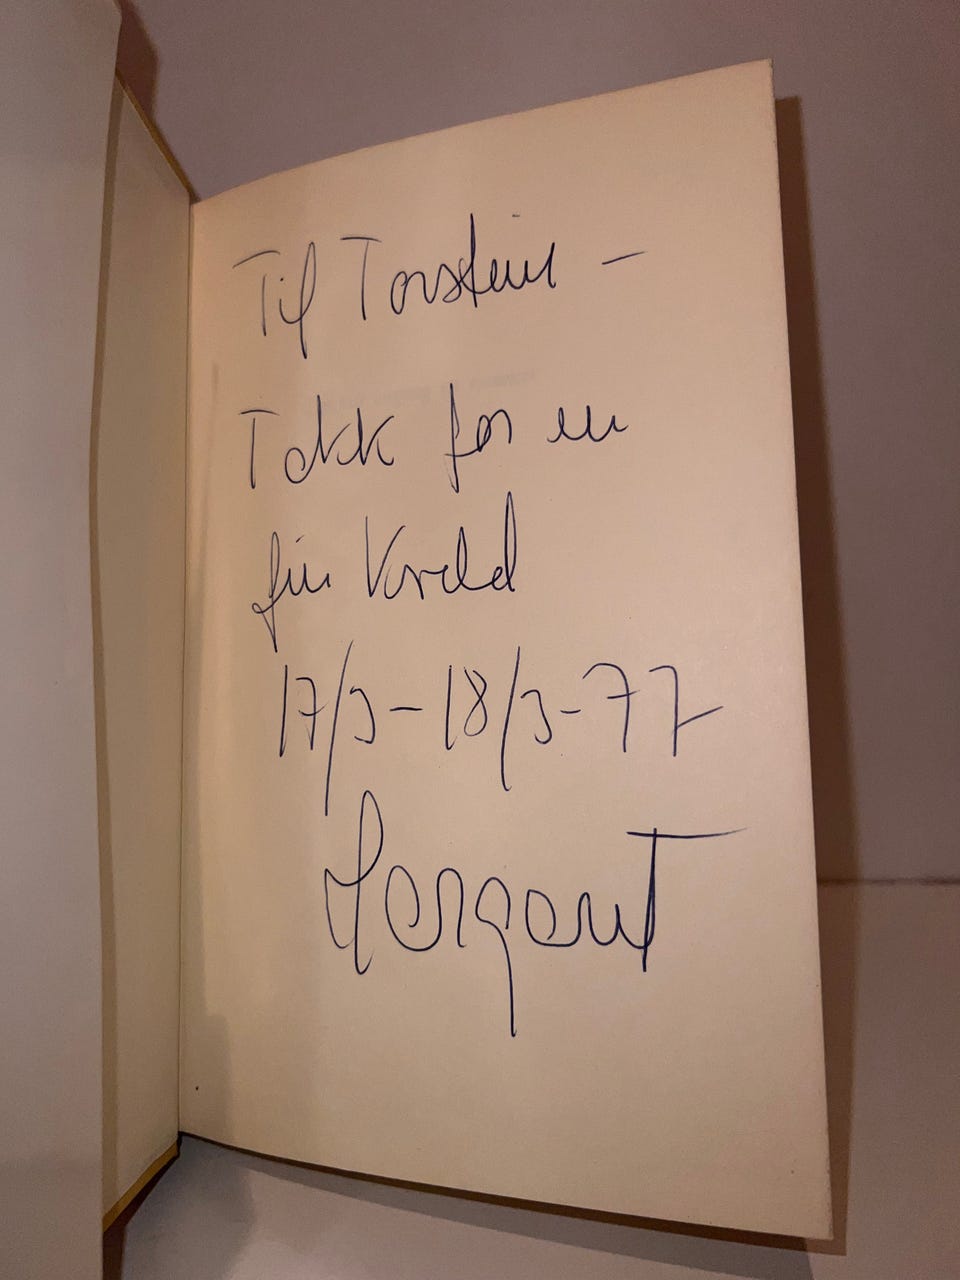 Til Torstein –
Takk for en
fin kveld
17/3 – 18/3 - 77
Margaret